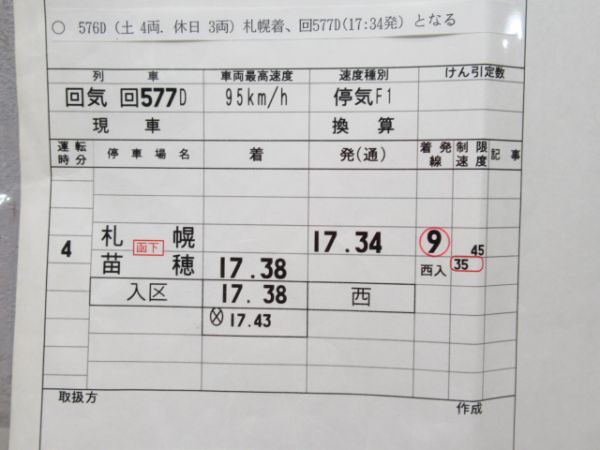 ○ 576D (土 4両. 休日 3両) 札幌着、回577D(17:34発) となる
列 車 車両最高速度 速度種別 けん引定数
回気 回577D 95km/h 停気F1
現 車 換 算
運転時分 停車場名 着 発(通) 着発線 制限速度 記事
札 幌 17.34 9 45
4 函下
苗 穂 17.38 西入 35
入区 17.38 西
Ⓧ 17.43
取扱方 作成